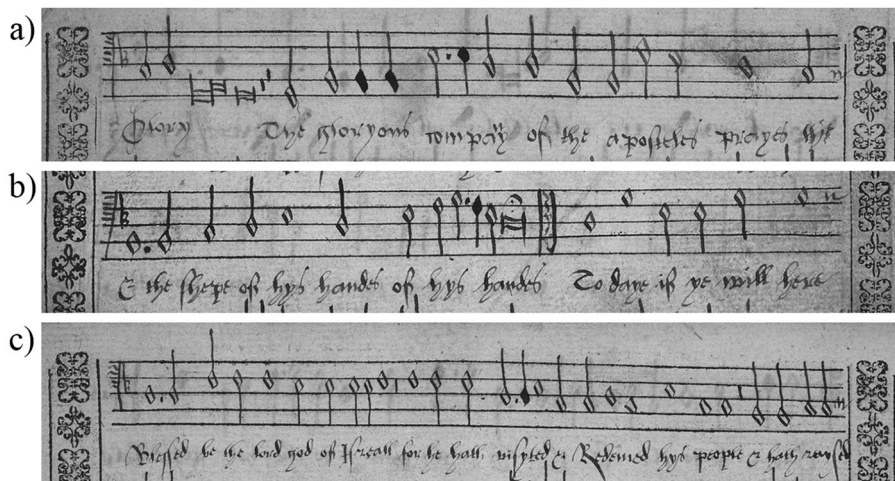 a)
Glory The gloryous compay of the aposteles prayes the
b)
& the shepe off hys handes of hys handes To daye if ye will here
c)
Blessed be the lord god of Israell for he hath vysyted & Redemed hys people & hath raysed